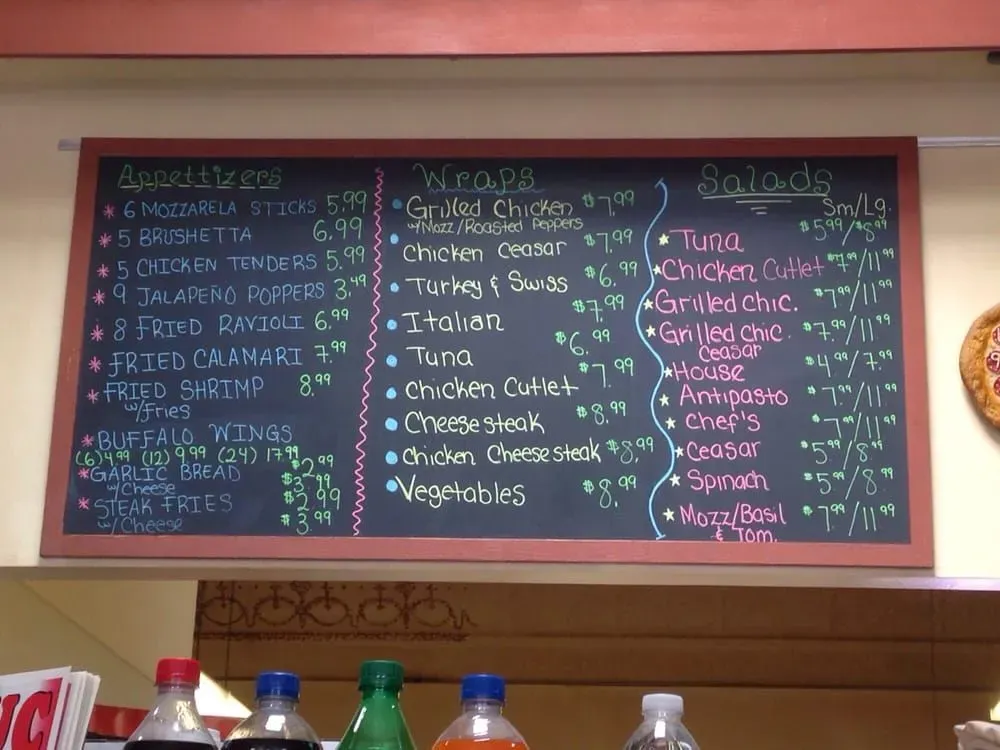 Appettizers
* 6 MOZZARELA STICKS 5.99
* 5 BRUSHETTA 6.99
* 5 CHICKEN TENDERS 5.99
* 9 JALAPEÑO POPPERS 3.49
* 8 FRIED RAVIOLI 6.99
* FRIED CALAMARI 7.99
* FRIED SHRIMP 8.99
w/Fries
* BUFFALO WINGS
(6) 4.99 (12) 9.99 (24) 17.99
* GARLIC BREAD $2.99
w/Cheese $3.99
* STEAK FRIES $2.99
w/Cheese $3.99
Wraps
Grilled Chicken $7.99
w/Mozz/Roasted Peppers
Chicken Ceasar $7.99
Turkey & Swiss $6.99
Italian $7.99
Tuna $6.99
Chicken Cutlet $7.99
Cheesesteak $8.99
Chicken Cheesesteak $8.99
Vegetables $8.99
Salads
Sm/Lg.
Tuna $5.99/$8.99
Chicken Cutlet $7.99/11.99
Grilled chic. $7.99/11.99
Grilled chic. $7.99/11.99
Ceasar
House $4.99/7.99
Antipasto $7.99/11.99
Chef's $7.99/11.99
Ceasar $5.99/8.99
Spinach $5.99/8.99
Mozz/Basil $7.99/11.99
& Tom.